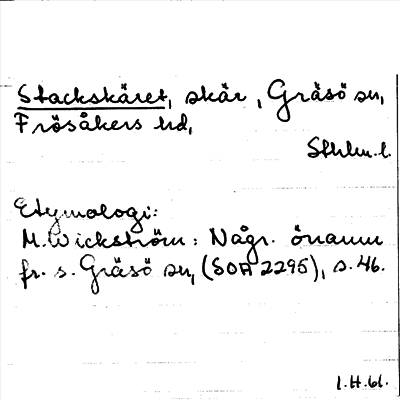 Stackskäret, skär, Gräsö sn,
Frösåkers hd,
Sthlm. l.
Etymologi:
M. Wickström: Någr. önamn
fr. s. Gräsö sn, (SOA 2295), s. 46.
I.H. 61.